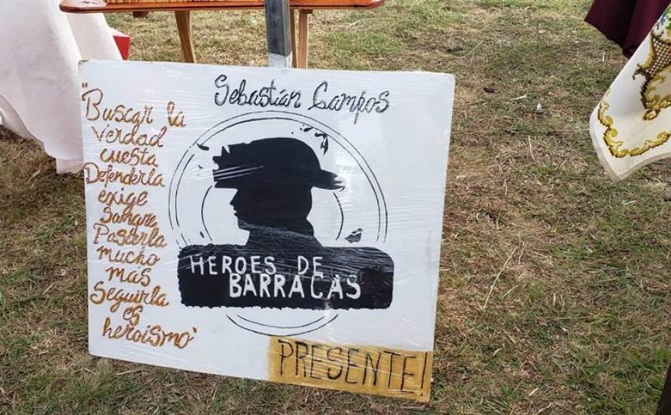 Sebastián Campos
"Buscar la
verdad
cuesta
Defenderla
exige
Pasarla
mucho
mas
Seguirla
es
heroismo"
HEROES DE
BARRACAS
PRESENTE!